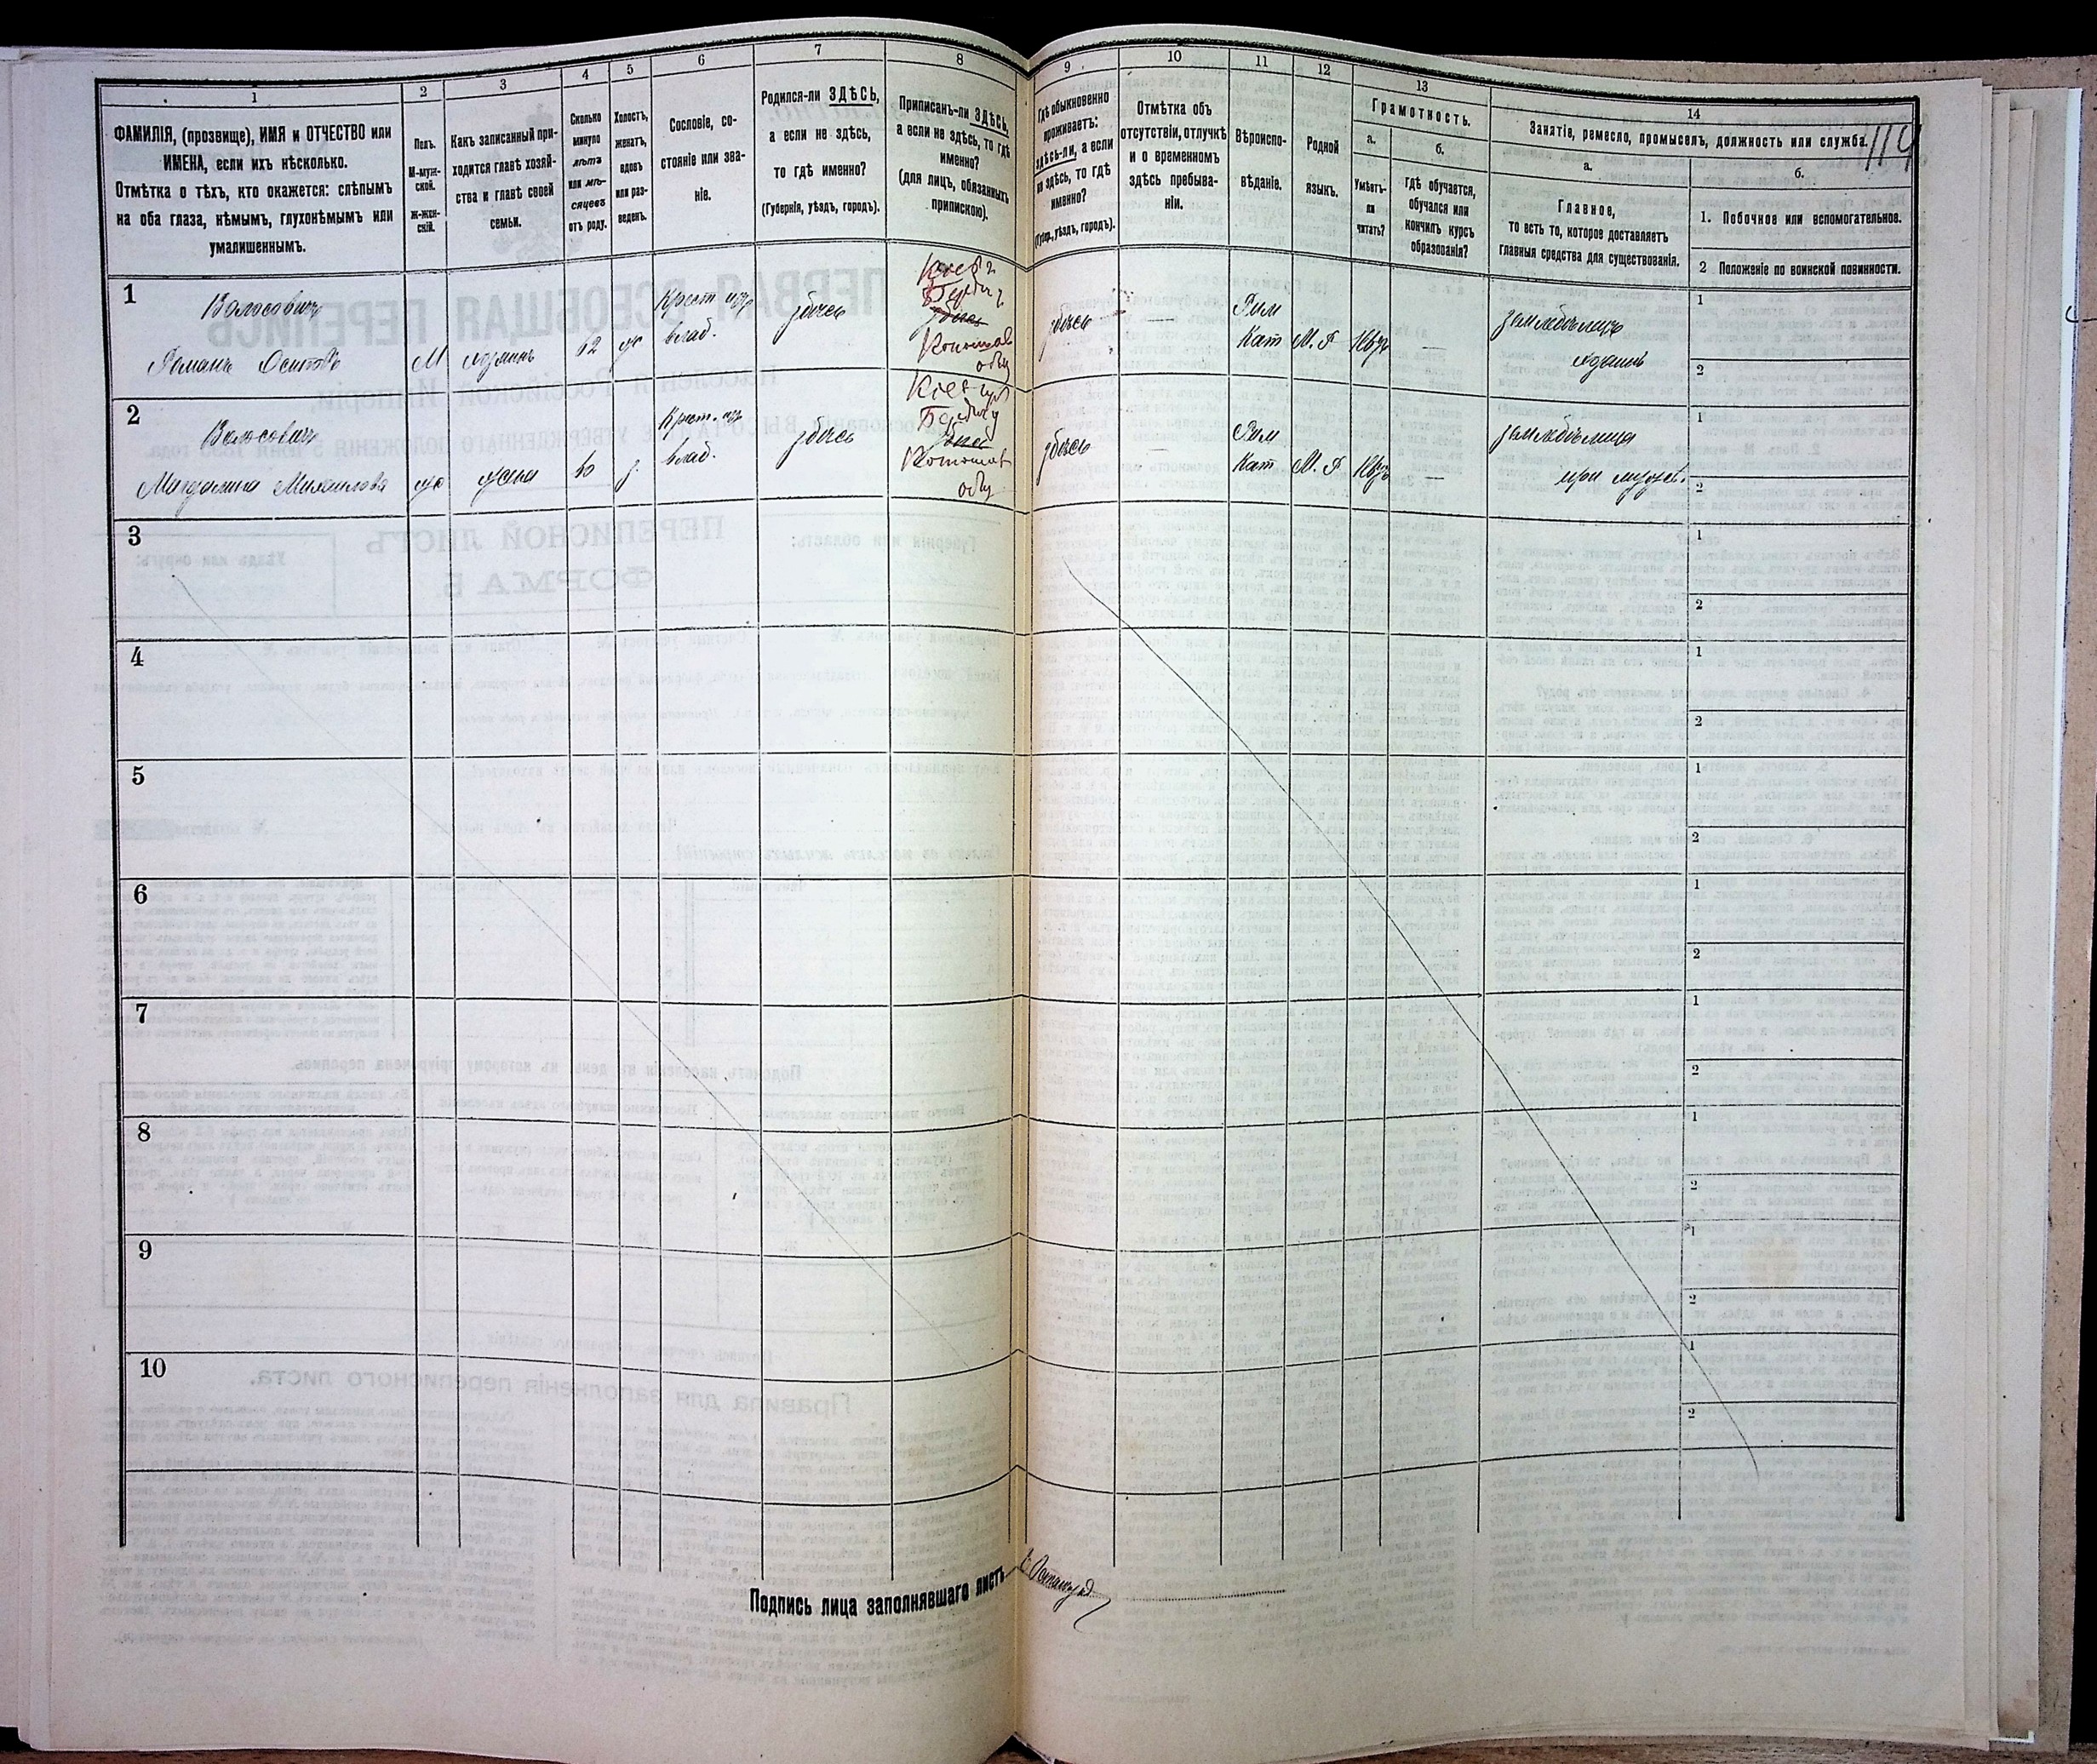 1
2
3
4
5
6
7
8
9
10
11
12
13
14
114
ФАМИЛІЯ, (прозвище), ИМЯ и ОТЧЕСТВО или
ИМЕНА, если ихъ нѣсколько.
Отмѣтка о тѣхъ, кто окажется: слѣпымъ
на оба глаза, нѣмымъ, глухонѣмымъ или
умалишеннымъ.
Полъ.
М-муж-
ской.
Ж-жен-
скій.
Какъ записанный при-
ходится главѣ хозяй-
ства и главѣ своей
семьи.
Сколько
минуло
лѣтъ
или мѣ-
сяцевъ
отъ роду.
Холостъ,
женатъ,
вдовъ
или раз-
веденъ.
Сословіе, со-
стояніе или зва-
ніе.
Родился-ли ЗДѢСЬ,
а если не здѣсь,
то гдѣ именно?
(Губернія, уѣздъ, городъ).
Приписанъ-ли ЗДѢСЬ,
а если не здѣсь, то гдѣ
именно?
(для лицъ, обязанныхъ
припискою).
Гдѣ обыкновенно
проживаетъ:
здѣсь-ли, а если
не здѣсь, то гдѣ
именно?
(Губер., уѣздъ, городъ).
Отмѣтка объ
отсутствіи, отлучкѣ
и о временномъ
здѣсь пребыва-
ніи.
Вѣроиспо-
вѣданіе.
Родной
языкъ.
Грамотность.
а.
Умѣетъ-
ли
читать?
б.
гдѣ обучается,
обучался или
кончилъ курсъ
образованія?
Занятіе, ремесло, промыселъ, должность или служба.
а.
Главное,
то есть то, которое доставляетъ
главныя средства для существованія.
б.
1. Побочное или вспомогательное.
2 Положеніе по воинской повинности.
1
Волосовичъ
Романъ Осиповъ
М
хозяинъ
62
ж
Крест. изъ
влад.
здѣсь
Кіев г.
Бердич г.
здѣсь
здѣсь
—
Рим
Кат
—
земледѣлецъ
хозяинъ
1
2
2
Волосовичъ
Магдалина Михаилова
ж
жена
60
з.
Крест. изъ
влад.
здѣсь
Кіев губ
Бердич у
здѣсь
здѣсь
—
Рим
Кат
—
земледѣлица
при мужѣ.
1
2
3
1
2
4
1
2
5
1
2
6
1
2
7
1
2
8
1
2
9
1
2
10
1
2
Подпись лица заполнявшаго листъ